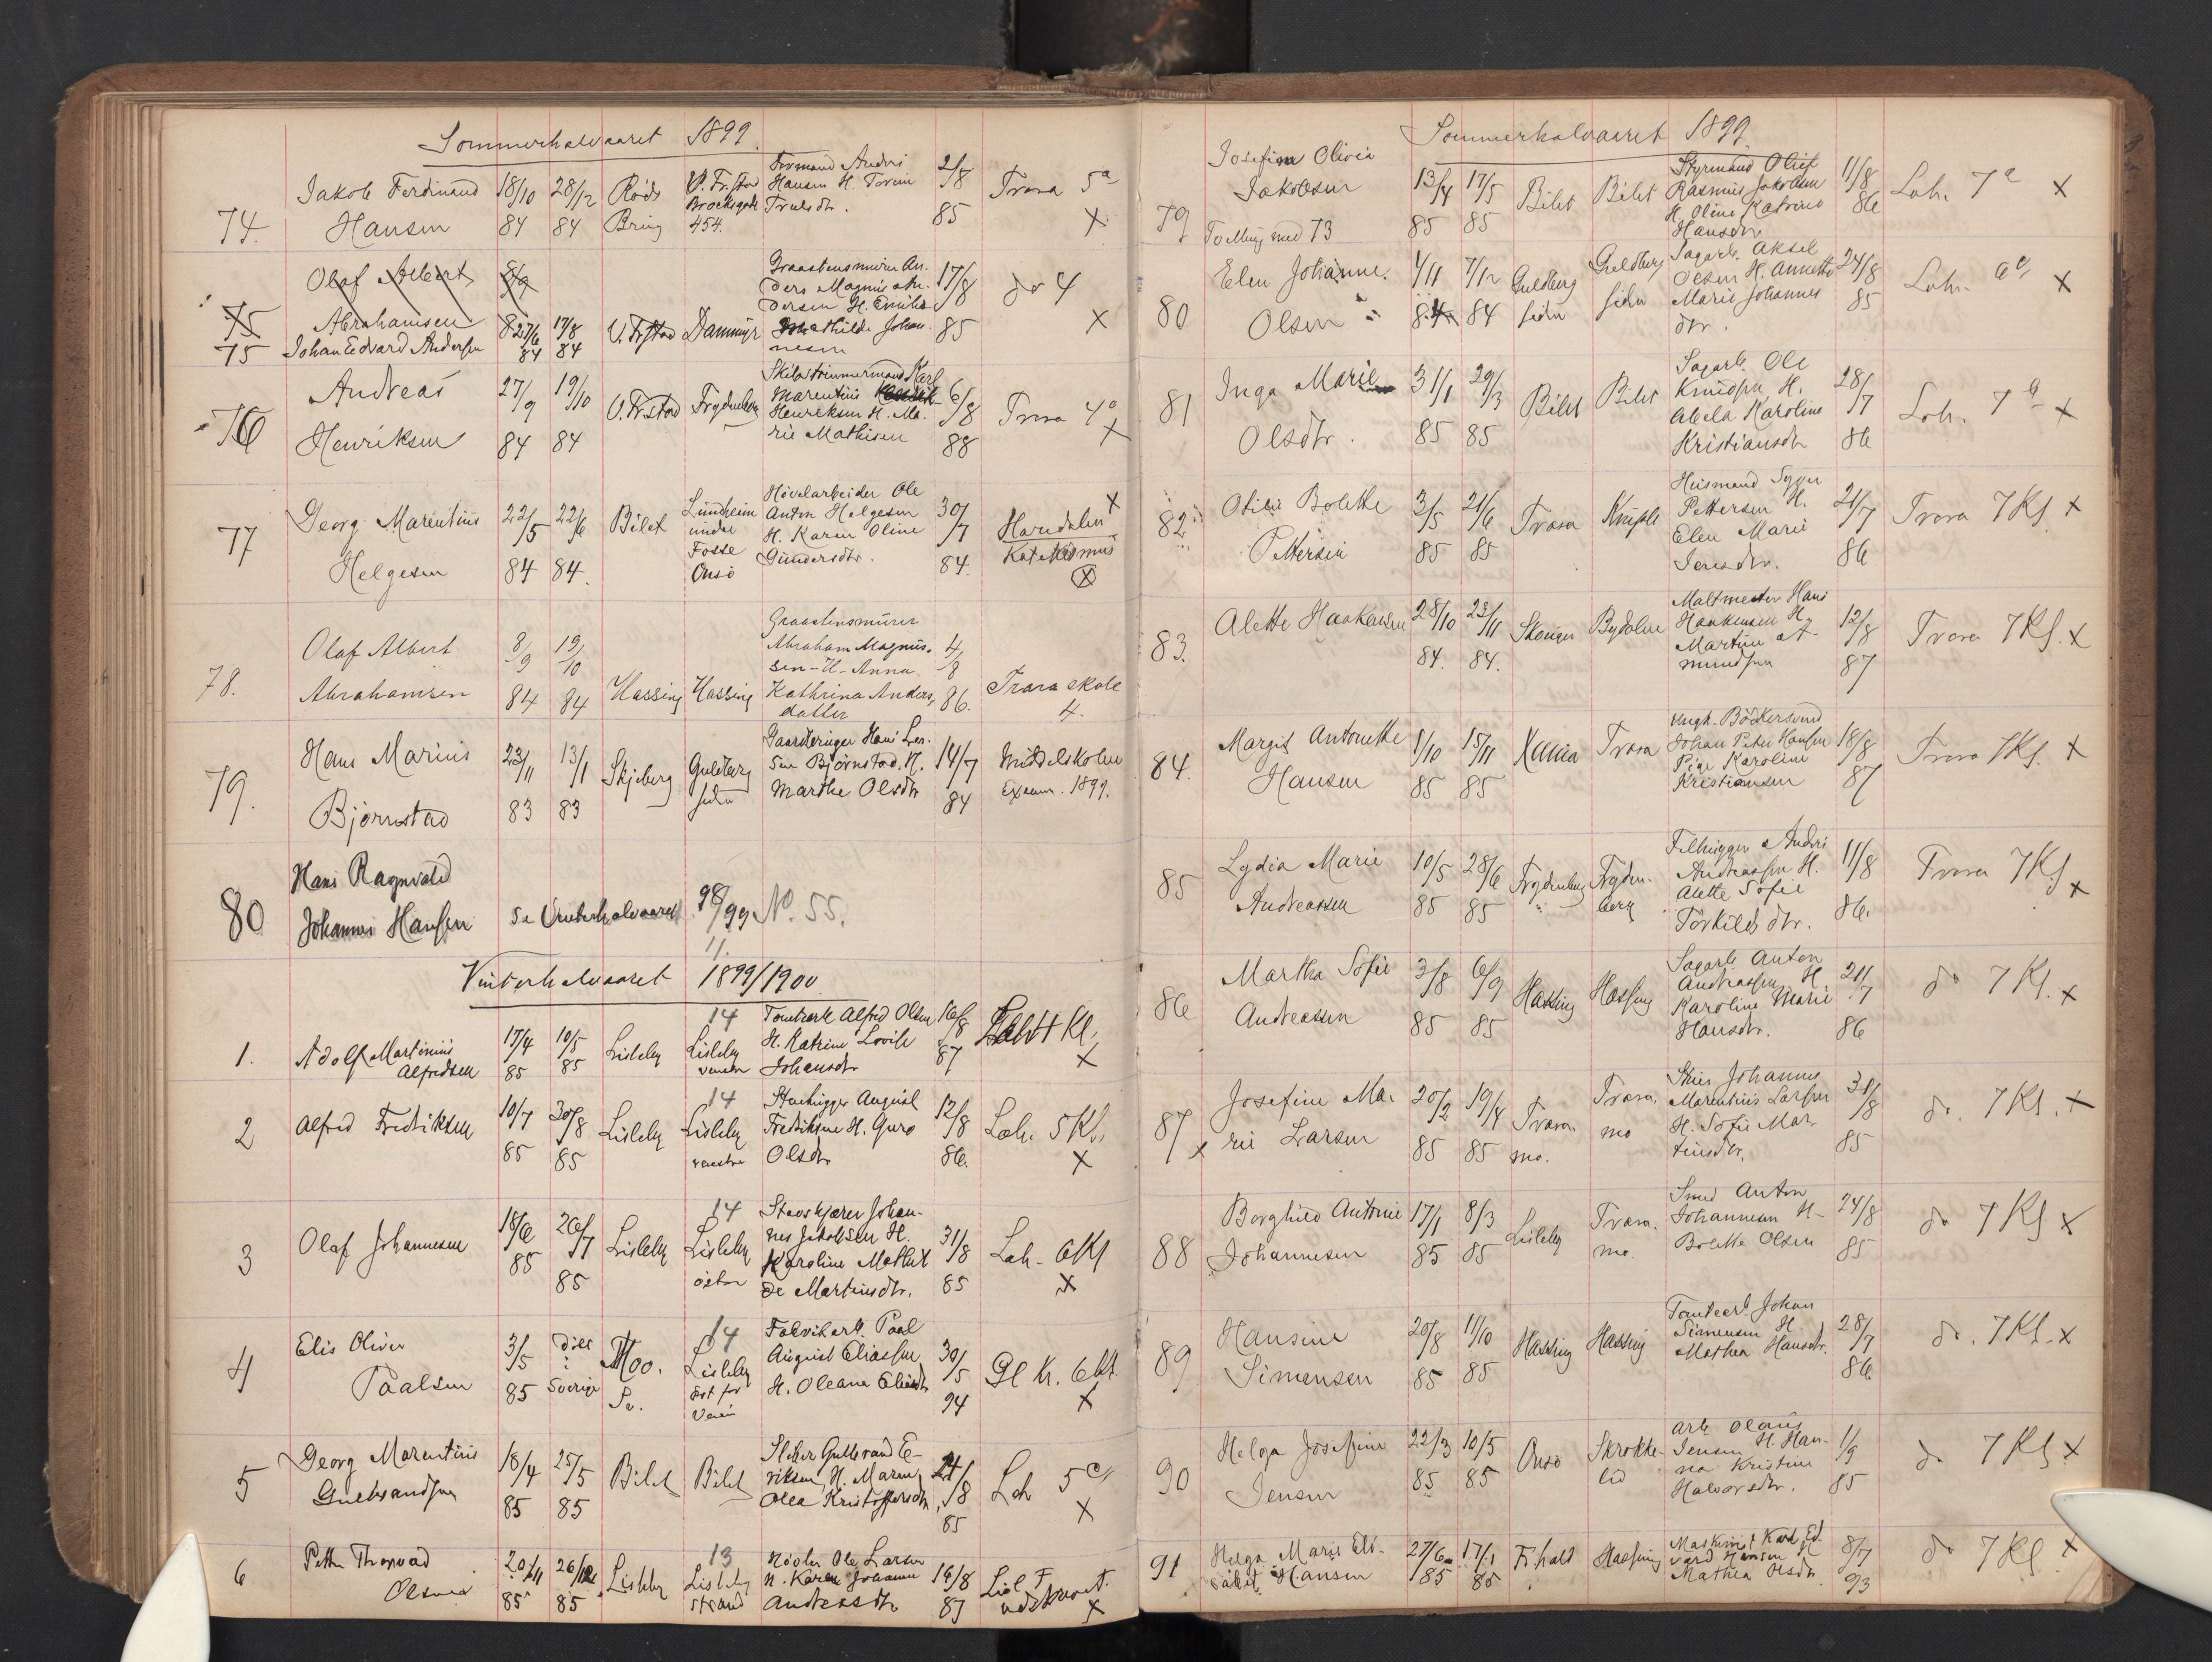 Sommerhalvaaret 1899.
74. Jakob Ferdinand Hansen 18/10 84 28/12 84 Røds Bring V. Fr.stad Brocksgade 454. Formand Andr. Hansen H. Trulsdtr. 2/8 85 Trara 5a X
75 Olaf Albert Abrahamsen 8/9
75 Johan Edvard Andersen 27/6 84 17/8 84 V. Frstad Dammyr Graastensmurer Anders Magnus Andersen H. Emilie Mathilde Johannesen 17/8 85 do 4 X
76 Andreas Henriksen 27/9 84 19/10 84 V. Fr.stad Frydenberg Skibstømmermand Karl Marentius Henriksen H. Marie Mathisen 6/8 88 Trara 4a X
77 Georg Marentius Helgesen 22/5 84 22/6 84. Bilet Lundheim under Fosse Onsø Høvelarbeider Ole Anton Helgesen H. Karen Oline Gundersdtr. 30/7 84. Haredalen Katekismus X
78. Olaf Albert Abrahamsen 8/9 84 19/10 84 Hassing Hassing Graastensmurer Abraham Magnussen - H. Anna Kathrina Andersdatter 4/8 86. Trara skole 4.
79. Hans Marius Bjørnstad 23/11 83 13/1 83 Skjeberg Guldbergsiden Gaardbruger Hans Larsen Bjørnstad. H. Marthe Olsdtr 14/7 84 Middelskolen Examn. 1899.
80 Hans Ragnvald Johannes Hansen Se Vinterhalvaaret 98/99 No. 55.
11.
Vinterhalvaaret 1899/1900
1. Adolf Martinius Alfredsen 17/4 85 10/5 85 Lisleby 14 Lisleby venstre Tomtearb Alfred Olsen H. Katrine Lovise Johansdtr 16/8 87 Lahl 4 Kl. X
2 Alfred Fredriksen 10/7 85 30/8 85 Lisleby 14 Lisleby venstre Stenhugger August Fredriksen H. Guro Olsdtr 12/8 86. Lah. 5 Kl. X
3 Olaf Johannesen 18/6 85 26/7 85 Lisleby 14 Lisleby østre Stavskjærer Johannes Jakobsen H. Karoline Mathilde Martinsdtr. 31/8 85 Lah. 6 Kl X
4 Elis Oliver Paalsen 3/5 85 Dals Sverige Moo. Sv. 14 Lisleby øst for Veien Fabrikarb. Paal August Eliassen H. Oleana Eliasdtr 30/5 94 Gl Kr. 6 kl. X
5 Georg Marentius Gulbrandsen 18/4 85 25/5 85 Bilet Bilet Sliber Gulbrand Eriksen, H. Maren Olea Kristoffersdtr. 24/8 85 Lah 5c X
6 Petter Thorvald Olsen 20/11 85 26/12 85 Lisleby 13 Lisleby strand Høvler Ole Larsen H. Karen Johanne Andreasdtr 16/8 87 Lisl F. udskrevet. X
Sommerhalvaaret 1899.
79 Josefine Olivia Jakobsen 13/4 85 17/5 85 Bilet Bilet Styrmand Oluf Rasmus Jakobsen H. Oline Katrine Hansdtr 11/8 86 Lah. 7a X
Tvilling med 73
80 Elen Johanne Olsen 1/11 84 7/12 84 Guldbergsiden Guldbergsiden Sagarb. Aksel Olsen H. Annette Marie Johannesdtr. 24/8 85 Lah. 6c X
81 Inga Marie Olsdtr. 31/1 85 29/3 85 Bilet Bilet Sagarb. Ole Knudsen H. Abela Karoline Kristiansdtr 28/7 86 Lah. 7b X
82 Otilie Bolette Pettersen 3/5 85 21/6 85 Trara Kniple Husmand Syver Pettersen H. Elen Marie Jensdtr. 21/7 86 Trara 7 Kl. X
83. Alette Haakensen 28/10 84. 23/11 84. Skouger Bydalen Maltmester Hans Haakensen H. Martine Amundsen 12/8 87 Trara 7 Kl. X
84. Margit Antonette Hansen 1/10 85 15/11 85 Kania Trara Ungk. Bødkersvend Johan Peter Hansen Pige Karoline Kristiansen 18/8 87 Trara 7 Kl. X
85 Lydia Marie Andreassen 10/5 85 28/6 85 Frydenberg Frydenberg Filhugger Anders Andreassen H. Alette Sofie Torkildsdtr. 11/8 86. Trara 7 Kl X
86 Martha Sofie Andreassen 3/8 85 6/9 85 Hassing Hassing Sagarb Anton Andreassen H. Karoline Marie Hansdtr. 211/7 86 do 7 Kl. X
87 x Josefine Marie Larsen 20/2 85 19/4 85 Traramo. Traramo Skier Johannes Marentius Larsen H. Sofie Martinsdtr. 31/8 85 do. 7 Kl. X
88 Borghild Antonie Johannesen 17/1 85 8/3 85 Lisleby Traramo. Smed Anton Johannesen H- Bolette Olsen 24/8 85 do 7 Kl X
89 Hansine Simensen 20/8 85 11/10 85 Hassing Hassing Tomtearb Johan Simensen H. Mathea Hansdtr. 28/7 86. do. 7 Kl. X
90 Helga Josefine Jensen 22/3 85 10/5 85 Onsø Skrokkelid Arb Olaus Jensen H. Hanna Kristine Halvorsdtr. 1/9 85 do 7 Kl X
91 Helga Marie Elisabet Hansen 27/6 85 17/1 85 Fr.hald Hassing Maskinist Karl Edvard Hansen H. Mathea Olsdtr. 8/7 93 do 7 Kl. X